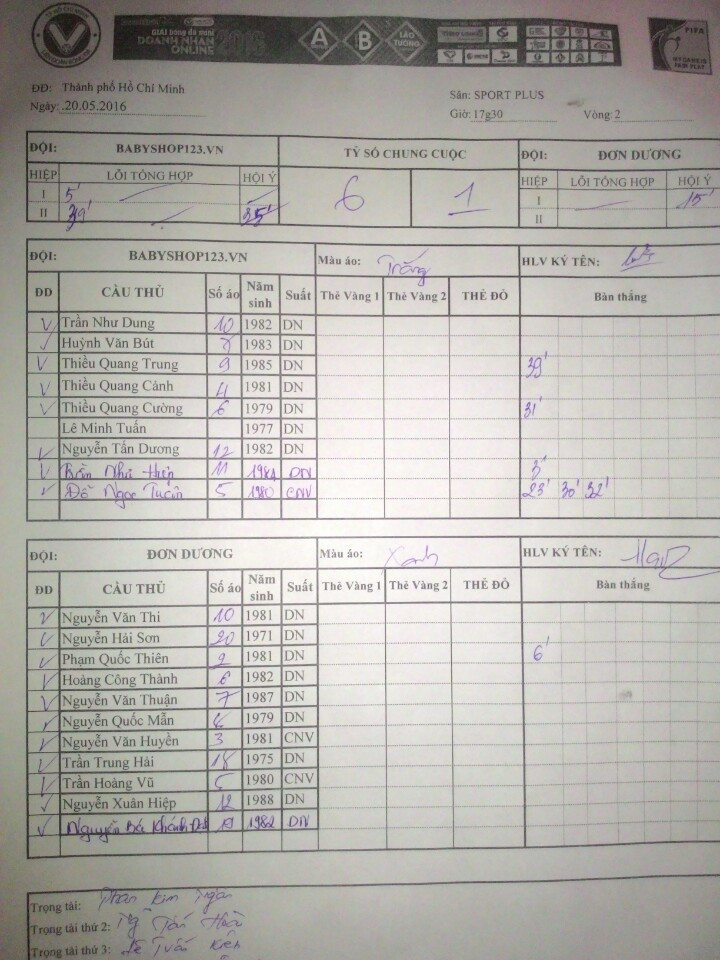 GIẢI bóng đá mini
DOANH NHÂN 2016
ONLINE
A B LÃO TƯỚNG
FIFA
MY GAME IS FAIR PLAY
ĐĐ: Thành phố Hồ Chí Minh
Sân: SPORT PLUS
Ngày: 20.05.2016
Giờ: 17g30 Vòng: 2
ĐỘI: BABYSHOP123.VN TỶ SỐ CHUNG CUỘC ĐỘI: ĐƠN DƯƠNG
HIỆP LỖI TỔNG HỢP HỘI Ý 6 1 HIỆP LỖI TỔNG HỢP HỘI Ý
I 5' I 15'
II 39' 35' II
ĐỘI: BABYSHOP123.VN Màu áo: Trắng HLV KÝ TÊN:
ĐD CẦU THỦ Số áo Năm sinh Suất Thẻ Vàng 1 Thẻ Vàng 2 THẺ ĐỎ Bàn thắng
Trần Như Dung 10 1982 DN
Huỳnh Văn Bút 1983 DN
Thiều Quang Trung 9 1985 DN 39'
Thiều Quang Cảnh 4 1981 DN
Thiều Quang Cường 6 1979 DN 31'
Lê Minh Tuấn 1977 DN
Nguyễn Tấn Dương 12 1982 DN
Trần Như 11 DN 3'
Đỗ Ngọc Tuấn 5 1980 CNV 23' 30' 32'
ĐỘI: ĐƠN DƯƠNG Màu áo: Xanh HLV KÝ TÊN:
ĐD CẦU THỦ Số áo Năm sinh Suất Thẻ Vàng 1 Thẻ Vàng 2 THẺ ĐỎ Bàn thắng
Nguyễn Văn Thi 10 1981 DN
Nguyễn Hải Sơn 20 1971 DN
Phạm Quốc Thiên 2 1981 DN 6'
Hoàng Công Thành 6 1982 DN
Nguyễn Văn Thuận 7 1987 DN
Nguyễn Quốc Mẫn 1979 DN
Nguyễn Văn Huyền 3 1981 CNV
Trần Trung Hải 18 1975 DN
Trần Hoàng Vũ 5 1980 CNV
Nguyễn Xuân Hiệp 12 1988 DN
Nguyễn Bá Khánh 19 1982 DN
Trọng tài: Phan Kim Ngân
Trọng tài thứ 2:
Trọng tài thứ 3: Lê Tuấn Kiên